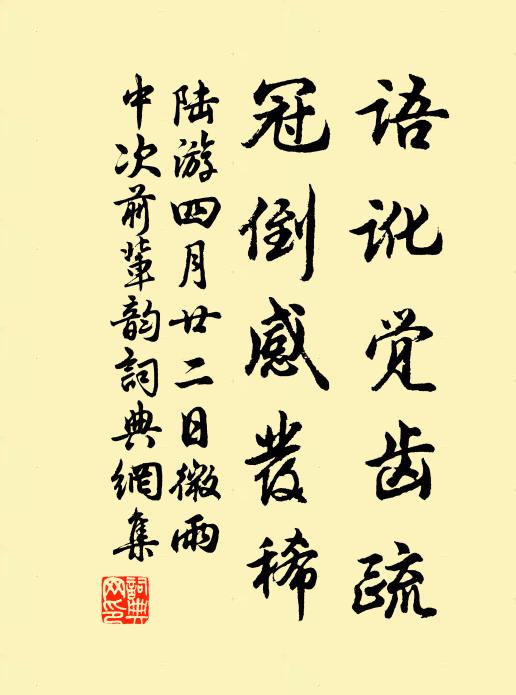 语讹觉齿疏
冠倒感发稀
陆游四月廿二日微雨
中次前辈韵词典網集
詞典网印